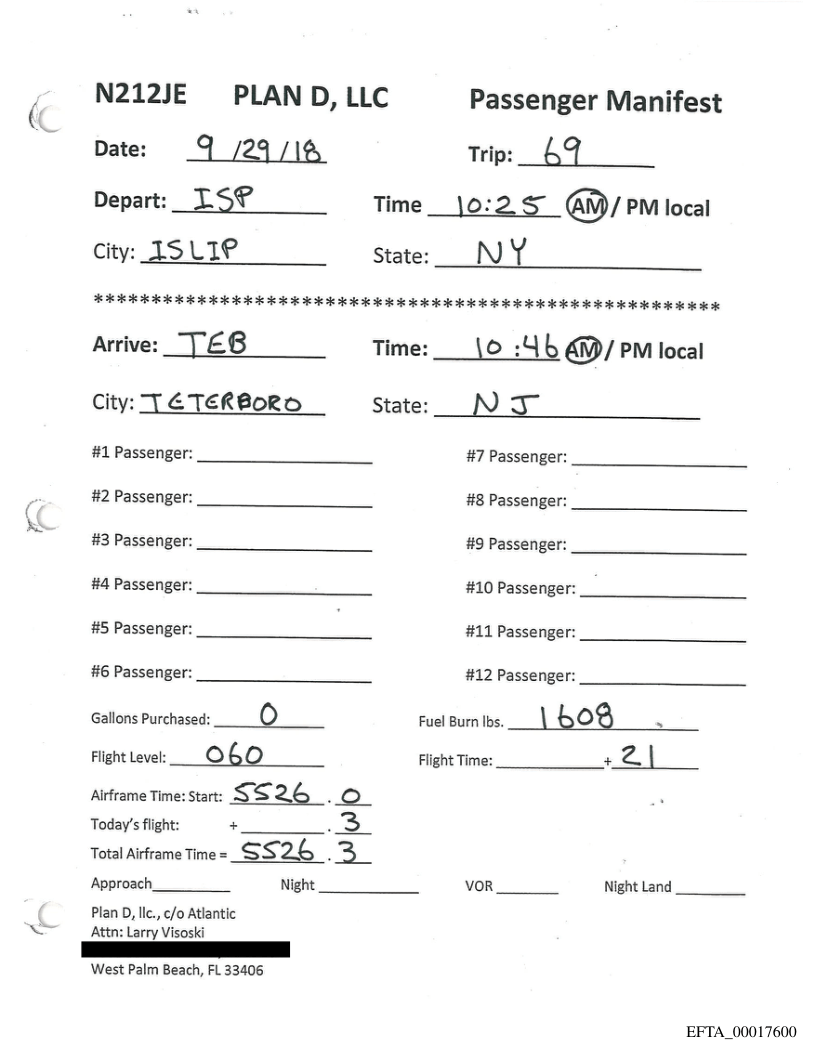 N212JE PLAN D, LLC Passenger Manifest
Date: 9 /29/18 Trip: 69
Depart: ISP Time 10:25 AM / PM local
City: ISLIP State: NY
******************************************************
Arrive: TEB Time: 10:46 AM / PM local
City: TETERBORO State: NJ
#1 Passenger: #7 Passenger:
#2 Passenger: #8 Passenger:
#3 Passenger: #9 Passenger:
#4 Passenger: #10 Passenger:
#5 Passenger: #11 Passenger:
#6 Passenger: #12 Passenger:
Gallons Purchased: 0 Fuel Burn lbs. 1608
Flight Level: 060 Flight Time: + 21
Airframe Time: Start: 5526 . 0
Today's flight: + . 3
Total Airframe Time = 5526 . 3
Approach Night VOR Night Land
Plan D, llc., c/o Atlantic
Attn: Larry Visoski
West Palm Beach, FL 33406
EFTA_00017600